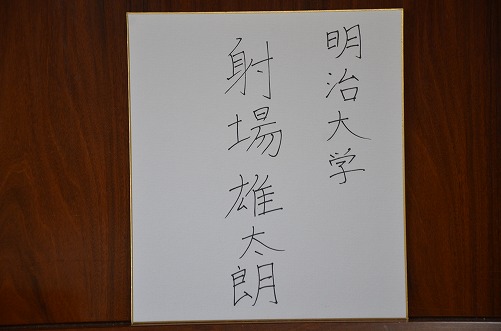 明治大学
射場雄太朗